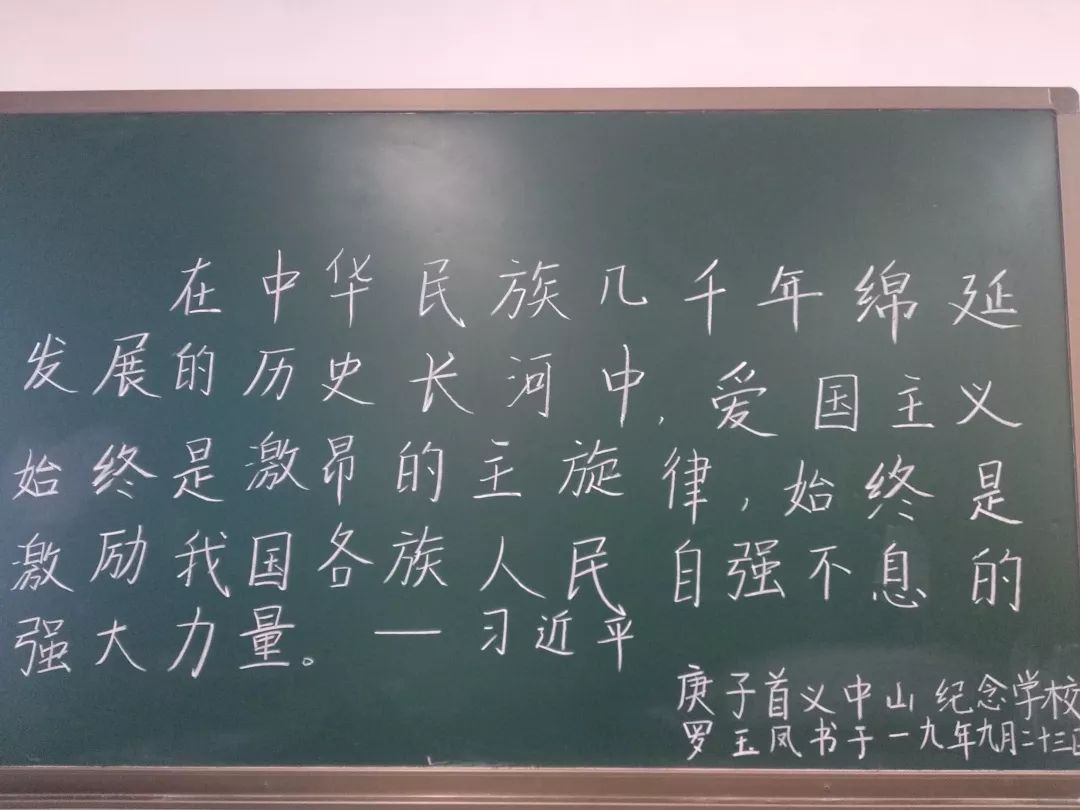 在中华民族几千年绵延
发展的历史长河中,爱国主义
始终是激昂的主旋律,始终是
激励我国各族人民自强不息的
强大力量。—习近平
庚子首义中山纪念学校
罗玉凤书于一九年九月二十三日